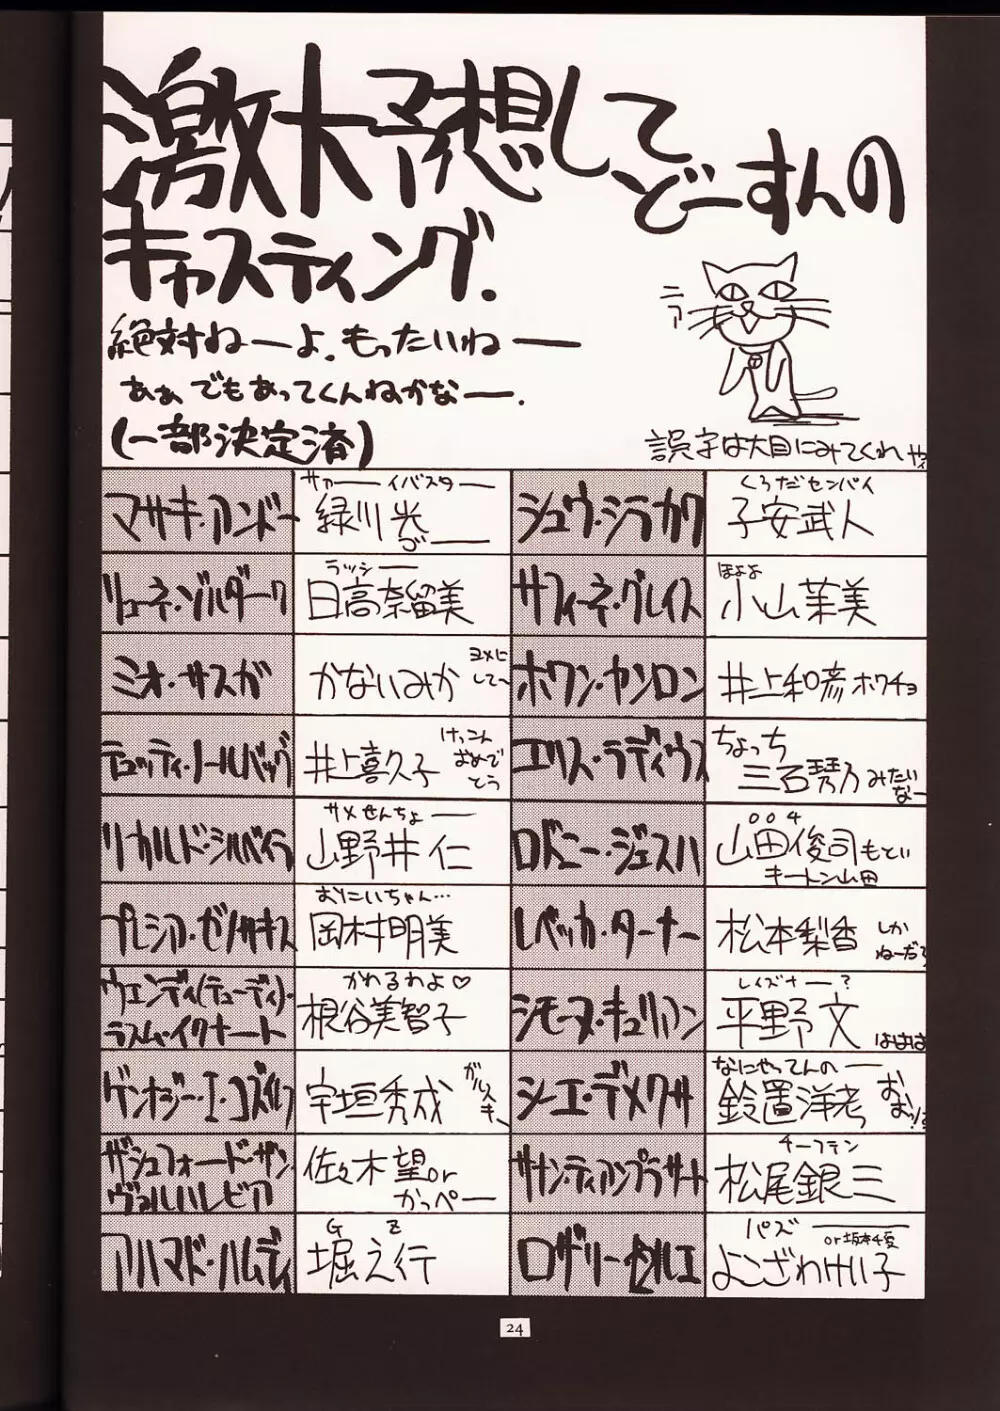 激大予想してどーすんの
キャスティング.
絶対ねーよ。もったいねー
あぁ、でもあってくんねかなー.
(一部決定済)
ニァ
誤字は大目にみてくれや
マサキ・アンドー
サァーイバスター
緑川光
ごー
シュウ・シラカワ
くろだセンパイ
子安武人
リューネ・ゾルダーク
ラッシー
日高奈留美
サフィーネ・グレイス
ほよよ
小山茉美
ミオ・サスガ
かないみか
ヨメに
してー
ホワン・ヤンロン
井上和彦 ホワチョ
テュッティ・ノールバック
井上喜久子
けっこん
おめで
とう
エリス・ラディウス
ちょっち
三石琴乃 みたい
なー
リカルド・シルベイラ
サメせんちょー
山野井 仁
ロドニー・ジェスハ
004
山田俊司 もとい
キートン山田
プレシア・ゼノサキス
おにいちゃん…
岡村明美
レベッカ・ターナー
松本梨香
しか
ねーだろ
ウェンディ(テューディ)・
ラスム・イクナート
かわるわよ♡
根谷美智子
シモーヌ・キュリアン
レイズナー?
平野 文
ははは
ゲンナジー・I・コズイレフ
宇垣秀成
シーエ・デメクサ
なにやってんのー
鈴置洋孝
ザシュフォード・ザン・
ヴァルハレビア
佐々木望or
かっぺー
サナン・ティアンプラサート
チーフテン
松尾銀三
アハマド・ハムディ
G Z
堀之行
ロザリー・セルエ
パズー
or 坂本千夏
よこざわけい子
24